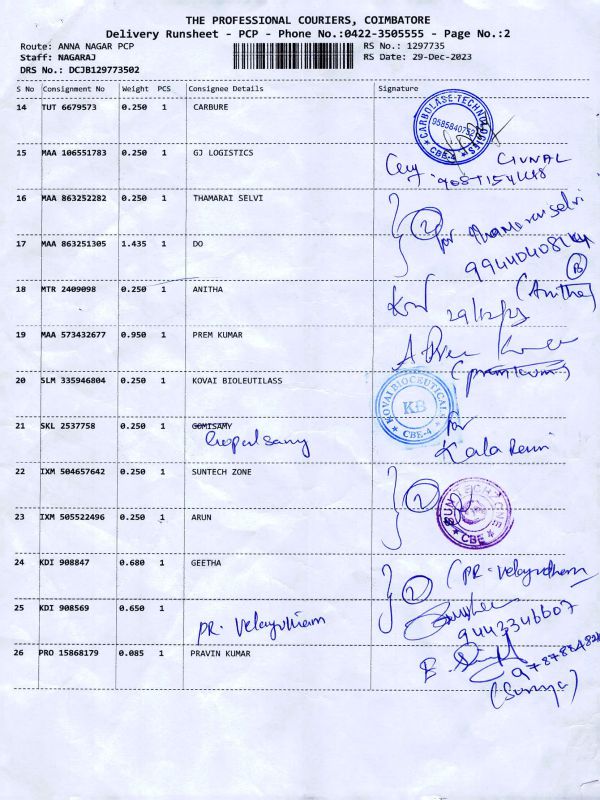 THE PROFESSIONAL COURIERS, COIMBATORE
Delivery Runsheet - PCP - Phone No.:0422-3505555 - Page No.:2
Route: ANNA NAGAR PCP RS No.: 1297735
Staff: NAGARAJ RS Date: 29-Dec-2023
DRS No.: DCJB129773502
S No Consignment No Weight PCS Consignee Details Signature
14 TUT 6679573 0.250 1 CARBURE
CARBOLASE TECHNOLOGIES
9585840752
CBE-4
15 MAA 106551783 0.250 1 GJ LOGISTICS
16 MAA 863252282 0.250 1 THAMARAI SELVI
2 for Thamarai selvi
17 MAA 863251305 1.435 1 DO
18 MTR 2409098 0.250 1 ANITHA
(Anitha)
29/12/23
19 MAA 573432677 0.950 1 PREM KUMAR
20 SLM 335946804 0.250 1 KOVAI BIOLEUTILASS
KOVAI BIOCEUTICALS
KB
CBE-4
21 SKL 2537758 0.250 1 GOMISAMY
Gopalsamy
for
22 IXM 504657642 0.250 1 SUNTECH ZONE
2
23 IXM 505522496 0.250 1 ARUN
CBE
24 KDI 908847 0.680 1 GEETHA
2 (PR. Velayutham
25 KDI 908569 0.650 1 PR. Velayutham
9443346607
26 PRO 15868179 0.085 1 PRAVIN KUMAR
(Surya)